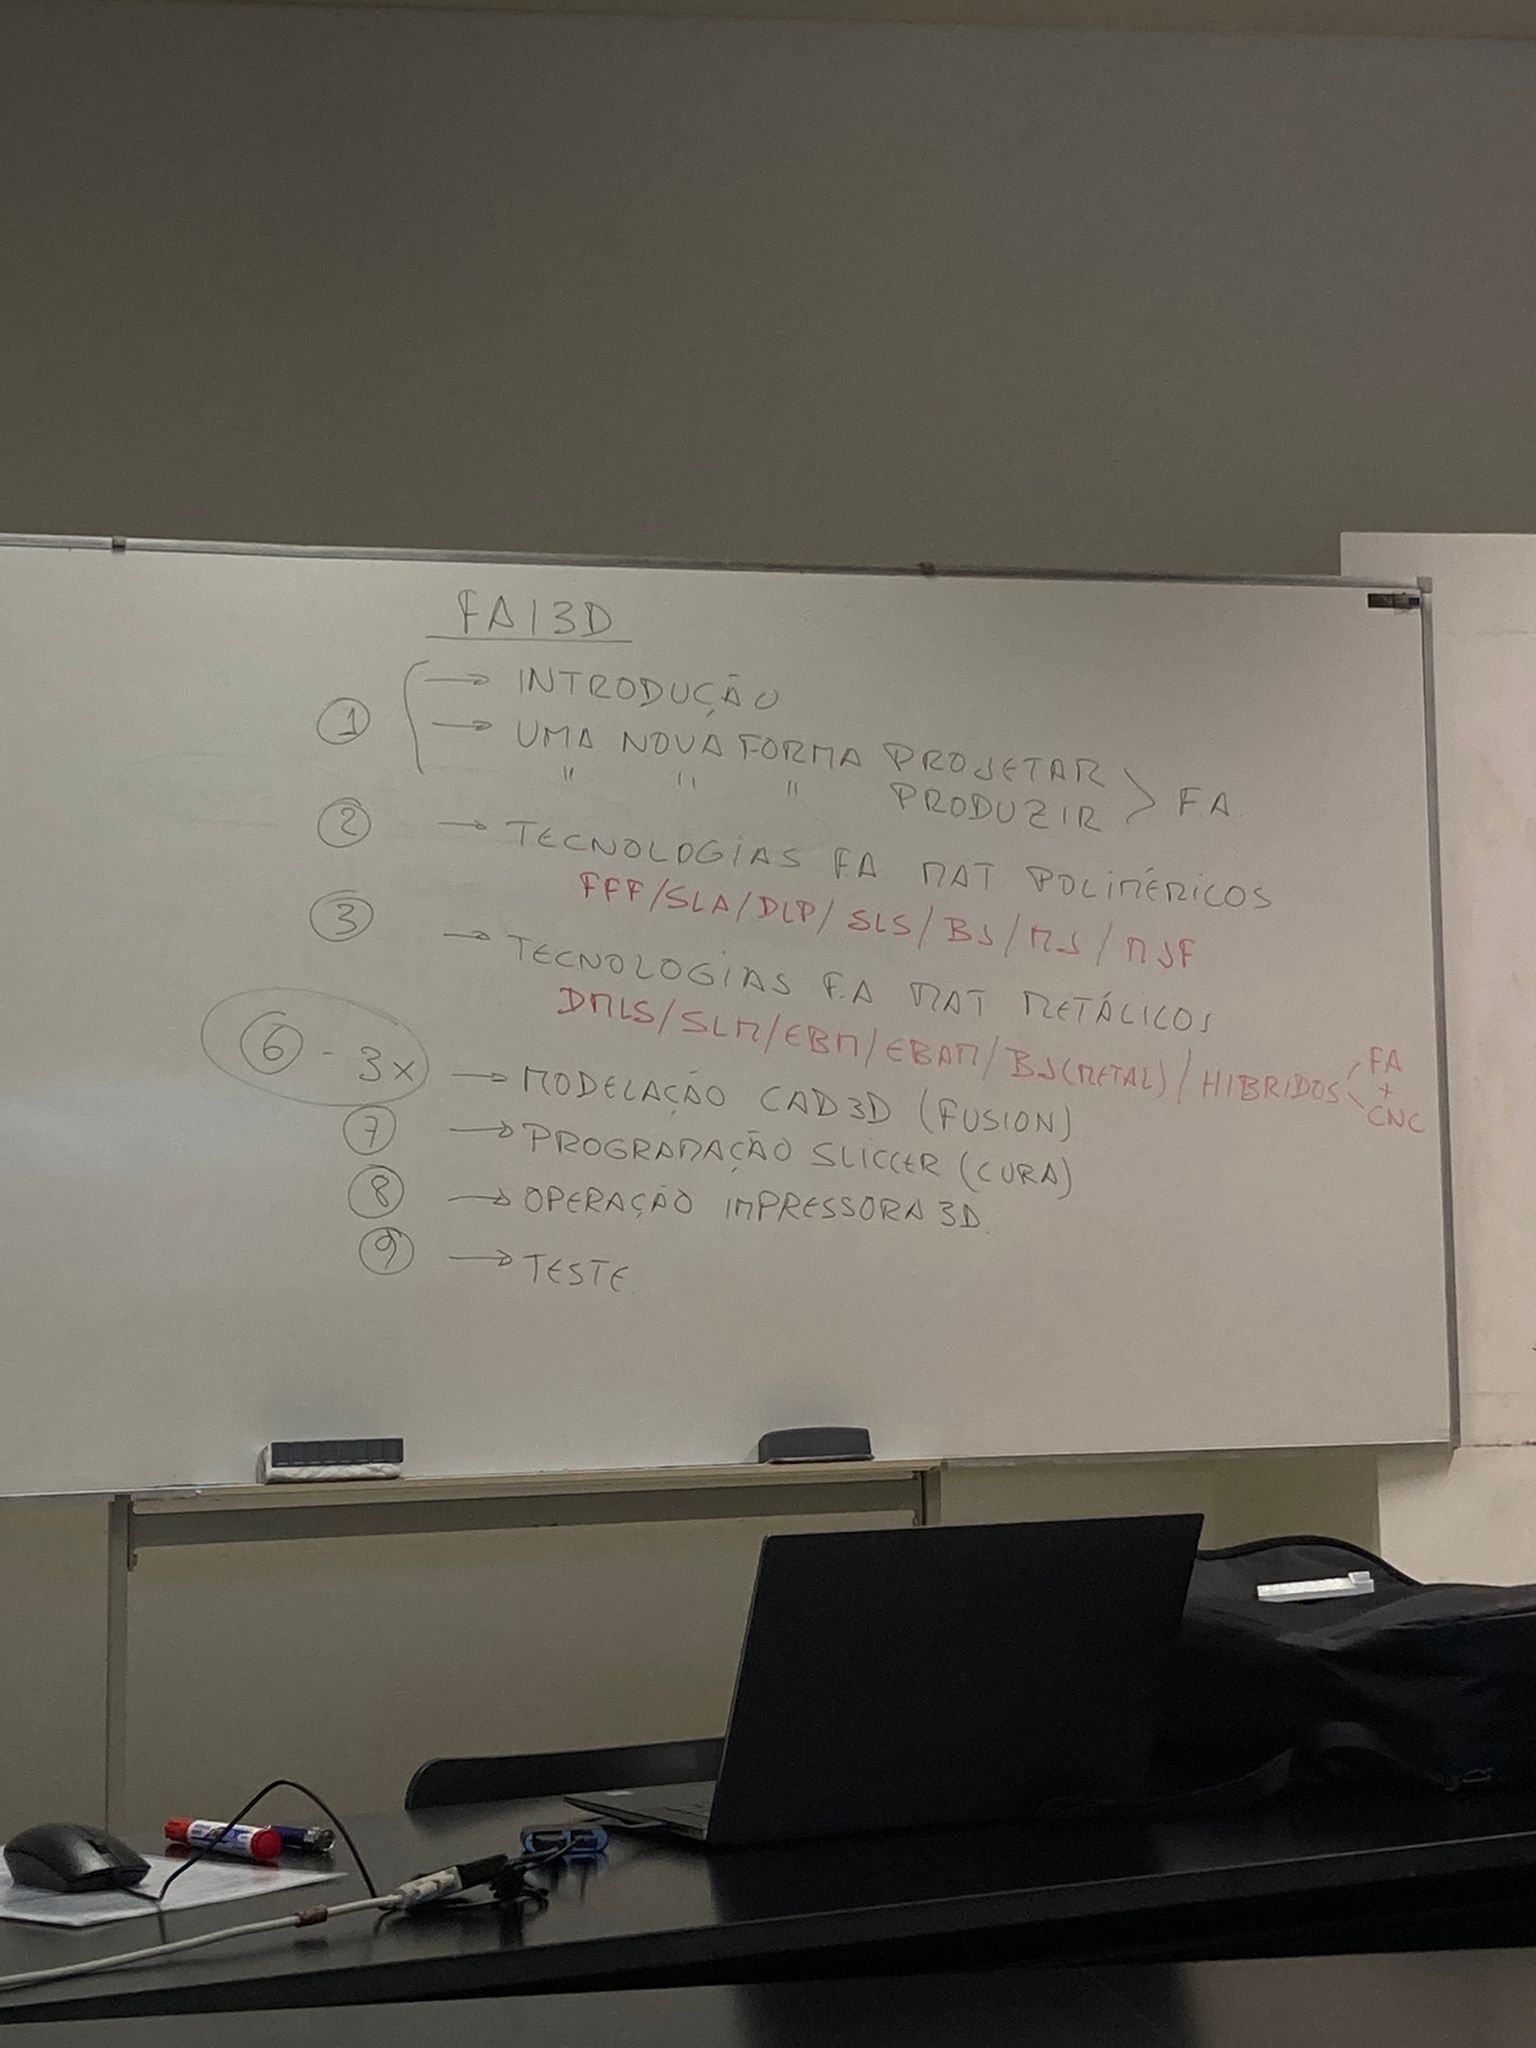 FA/3D
① → INTRODUÇÃO
→ UMA NOVA FORMA PROJETAR
" " " PRODUZIR > F.A.
② → TECNOLOGIAS FA MAT POLIMÉRICOS
FFF/SLA/DLP/SLS/BJ/MJ/MJF
③ → TECNOLOGIAS F.A MAT METÁLICOS
DMLS/SLM/EBM/EBAM/BJ(METAL)/HIBRIDOS < FA + CNC
⑥ - 3x → MODELAÇÃO CAD3D (FUSION)
⑦ → PROGRAMAÇÃO SLICCER (CURA)
⑧ → OPERAÇÃO IMPRESSORA 3D
⑨ → TESTE